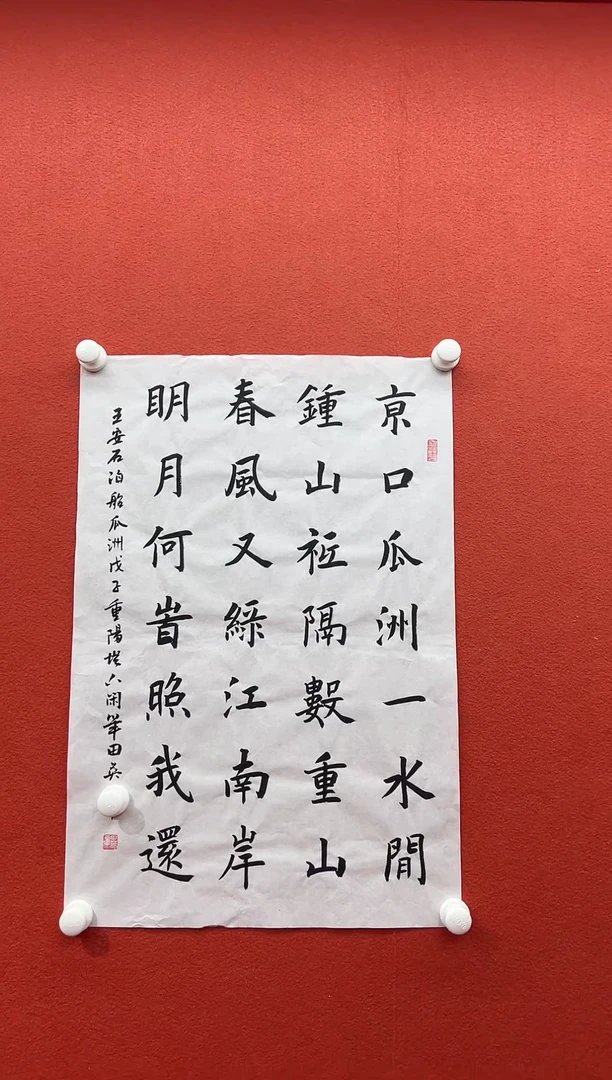 亰口瓜洲一水閒
鍾山祗隔數重山
春風又綠江南岸
眀月何旹照我還
王安石泊船瓜洲戊子重陽